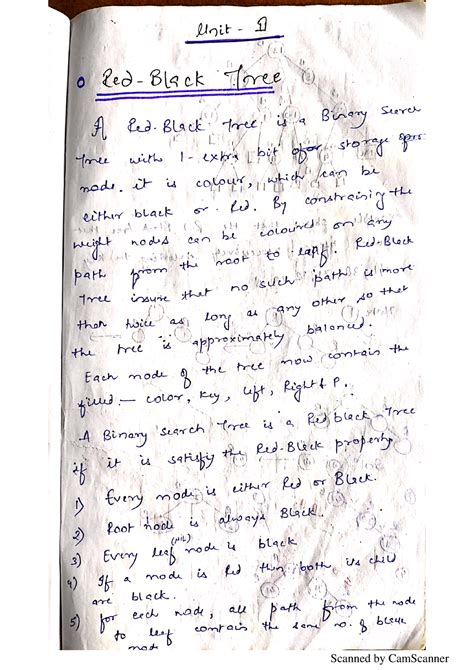 Unit - II
Red-Black Tree
A Red-Black Tree is a Binary Search
Tree with 1-extra bit of or storage per
node. it is colour, which can be
either black or Red. By constraining the
weight nodes can be coloured on any
path from the root to leaf. Red-Black
Tree insure that no such path is more
than twice as long as any other so that
the tree is approximately balanced.
Each node of the tree now contain the
filled — color, Key, left, Right & P.
A Binary search Tree is a Red black Tree
if it is satisfy the Red-Black property
1) Every node is either Red or Black.
2) Root node is always Black.
3) Every leaf (NIL) node is black
4) If a node is Red then both its child
are black.
5) for each node, all path from the node
to leaf contain the same no. of black
node
Scanned by CamScanner